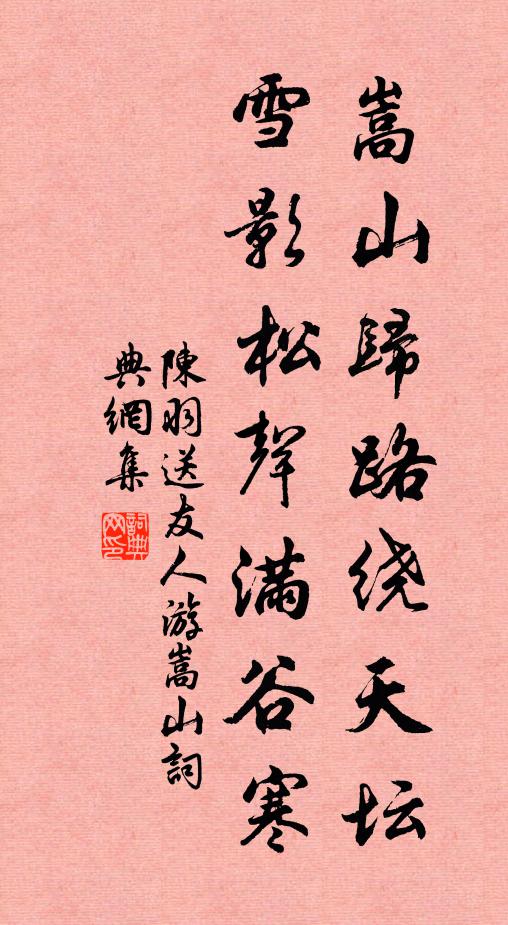 嵩山歸路绕天坛
雪影松聲满谷寒
陳羽送友人游嵩山詞
典網集
詞典网印